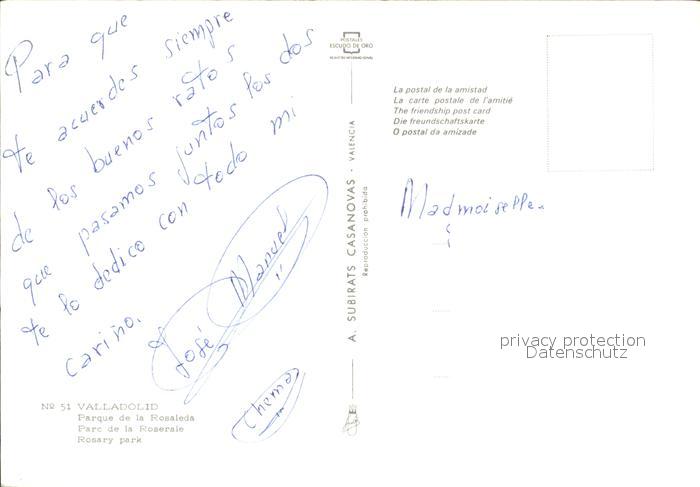 Para que
te acuerdes siempre
de los buenos ratos
que pasamos juntos los dos
te lo dedico con todo mi
cariño.
José Manuel
Chema
Nº 51 VALLADOLID
Parque de la Rosaleda
Parc de la Roseraie
Rosary park
POSTALES
ESCUDO DE ORO
A. SUBIRATS CASANOVAS - VALENCIA
Reproducción prohibida
La postal de la amistad
La carte postale de l'amitié
The friendship post card
Die freundschaftskarte
O postal da amizade
Madmoiselle.
privacy protection
Datenschutz